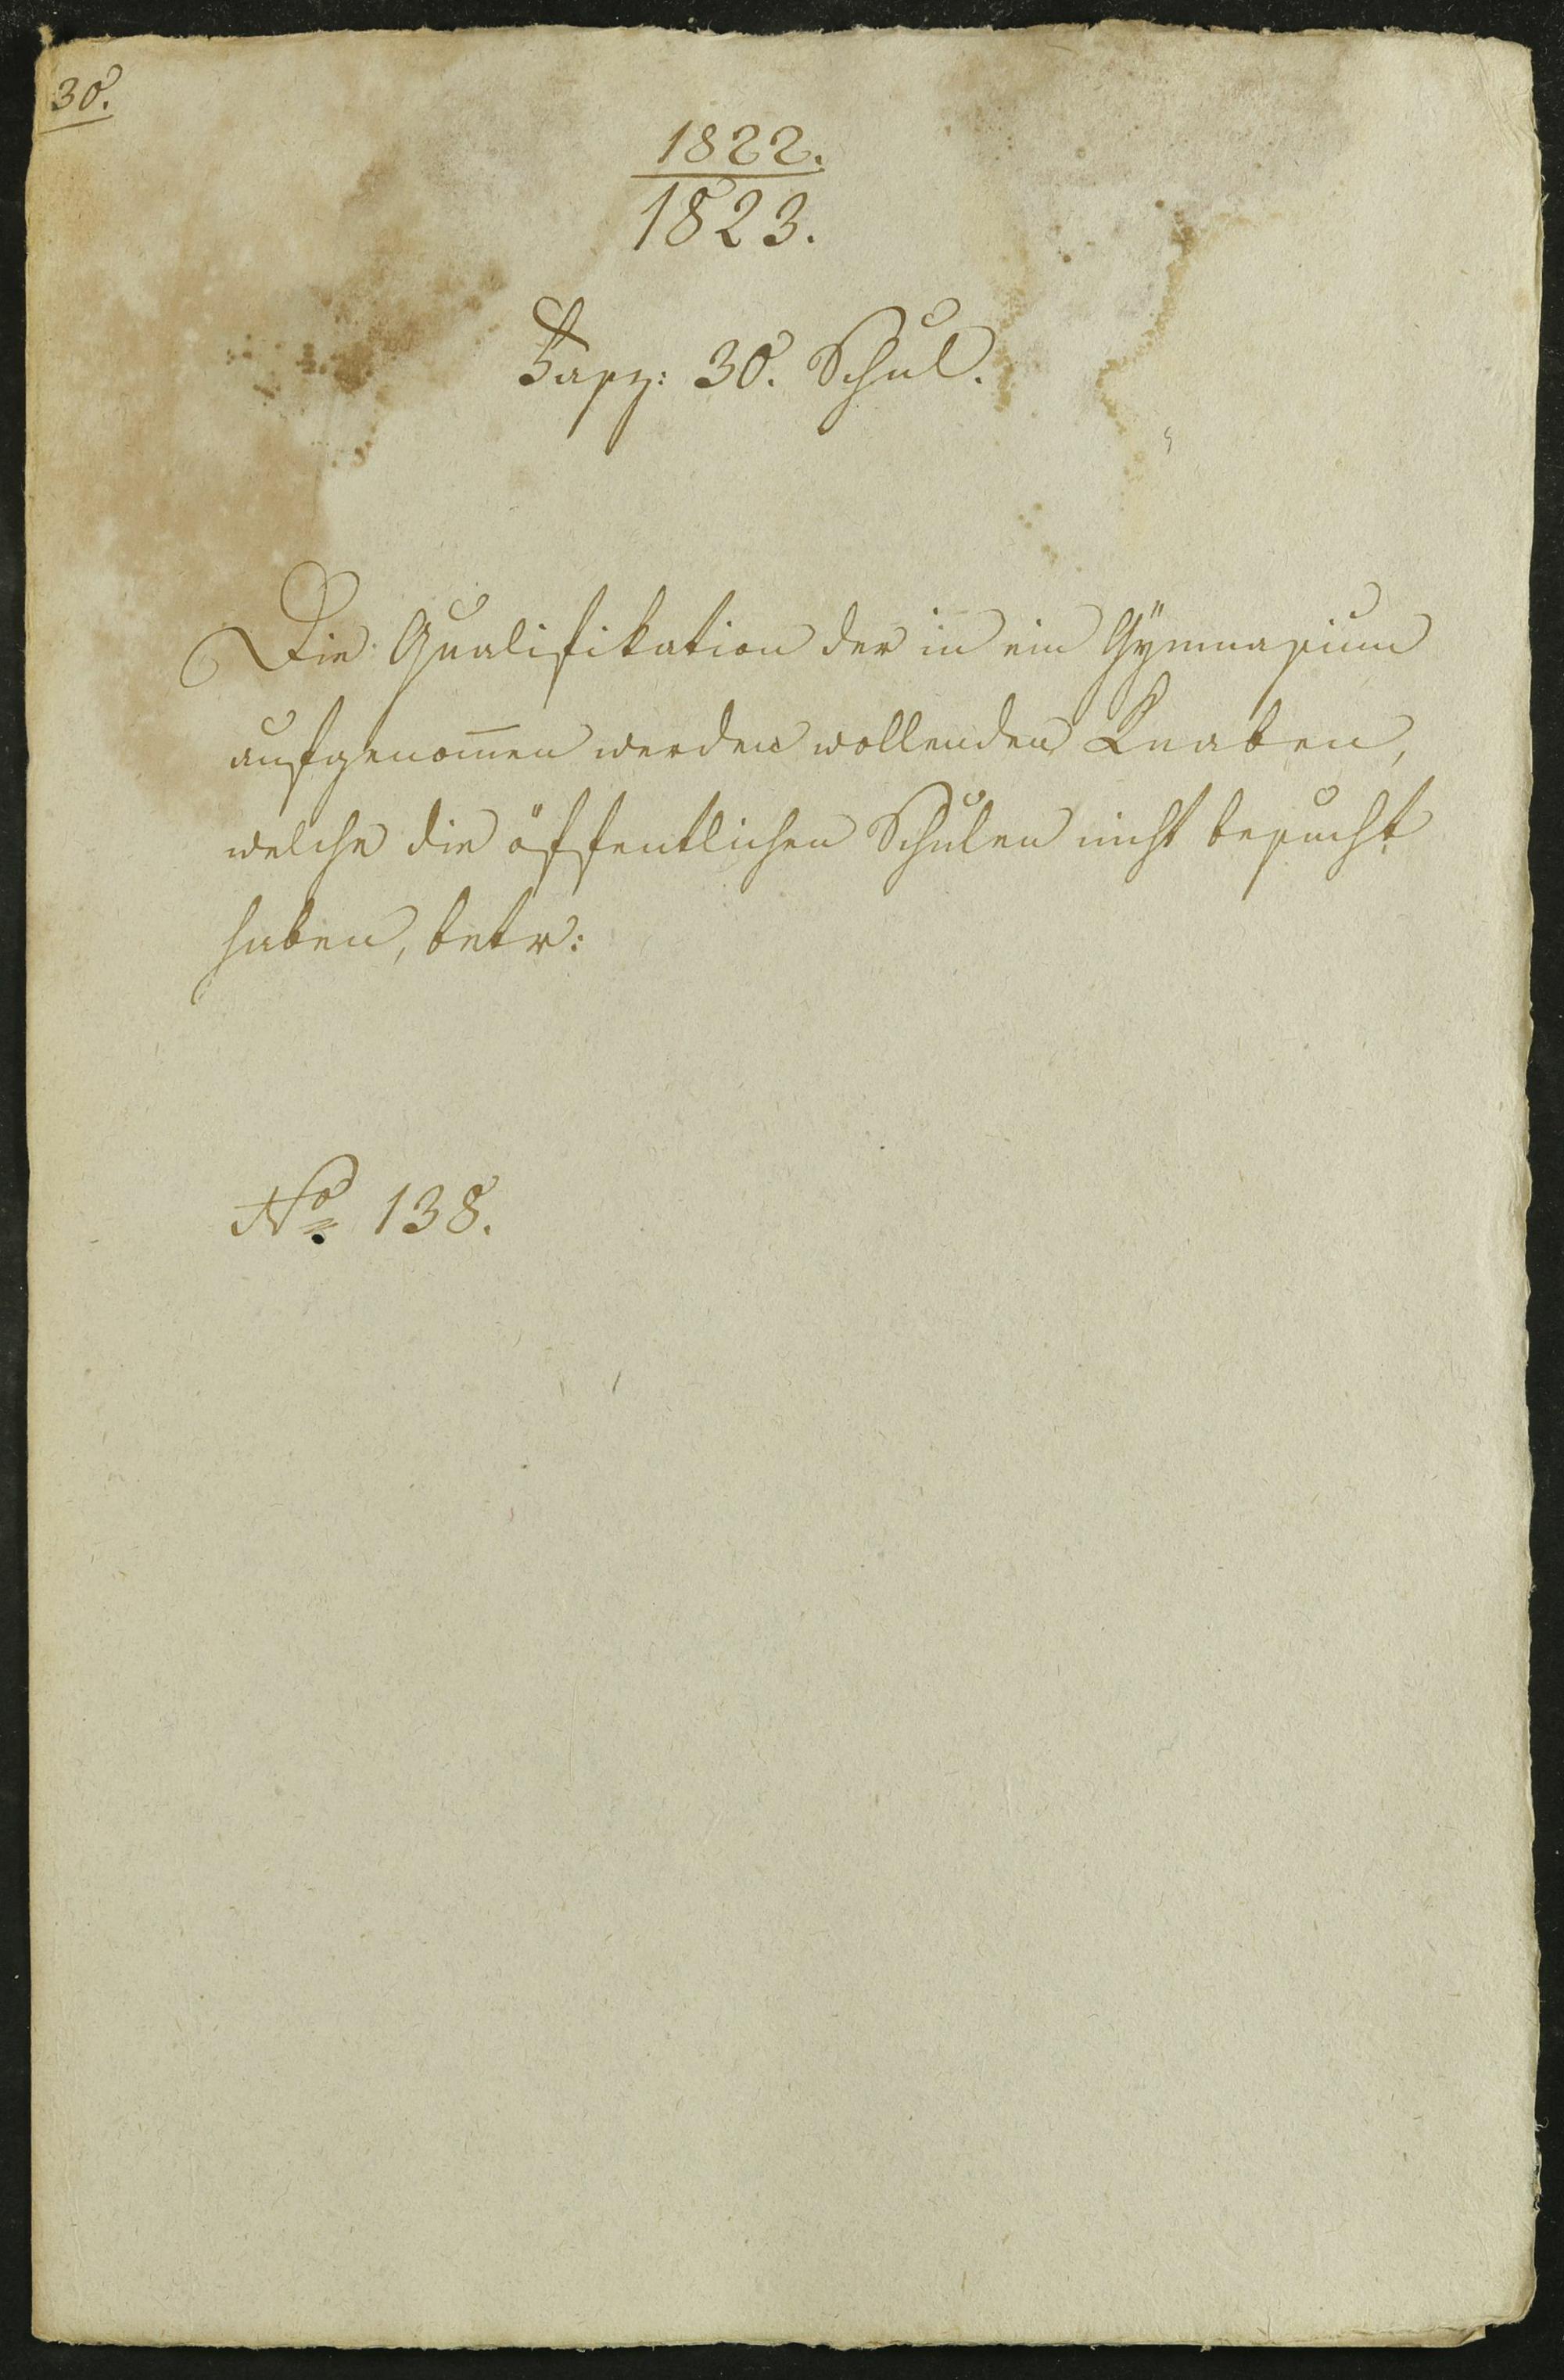 30.
1822.
1823.
Fasz: 30. Schul.
Die Qualifikation der in ein Gÿmnasium
aufgenom̅en werden wollenden Knaben,
welche die öffentlichen Schulen nicht besucht
haben, betr:
No. 138.